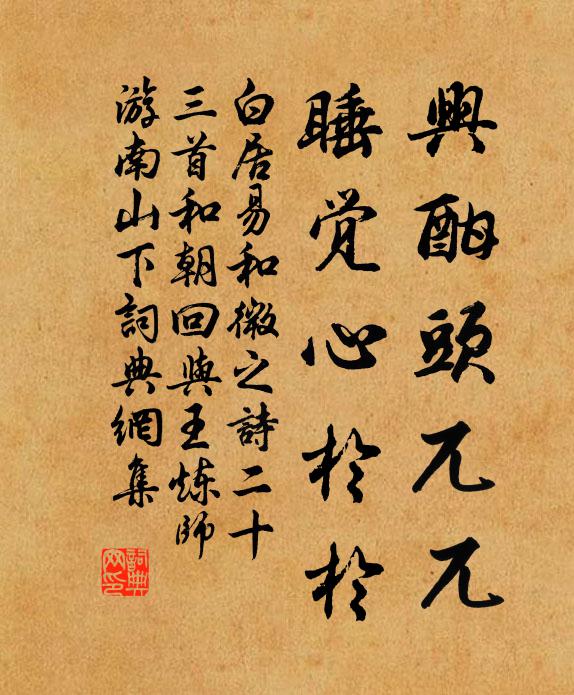 興酣頭兀兀
睡觉心於於
白居易和微之詩二十
三首和朝回與王炼師
游南山下詞典網集
詞典网印